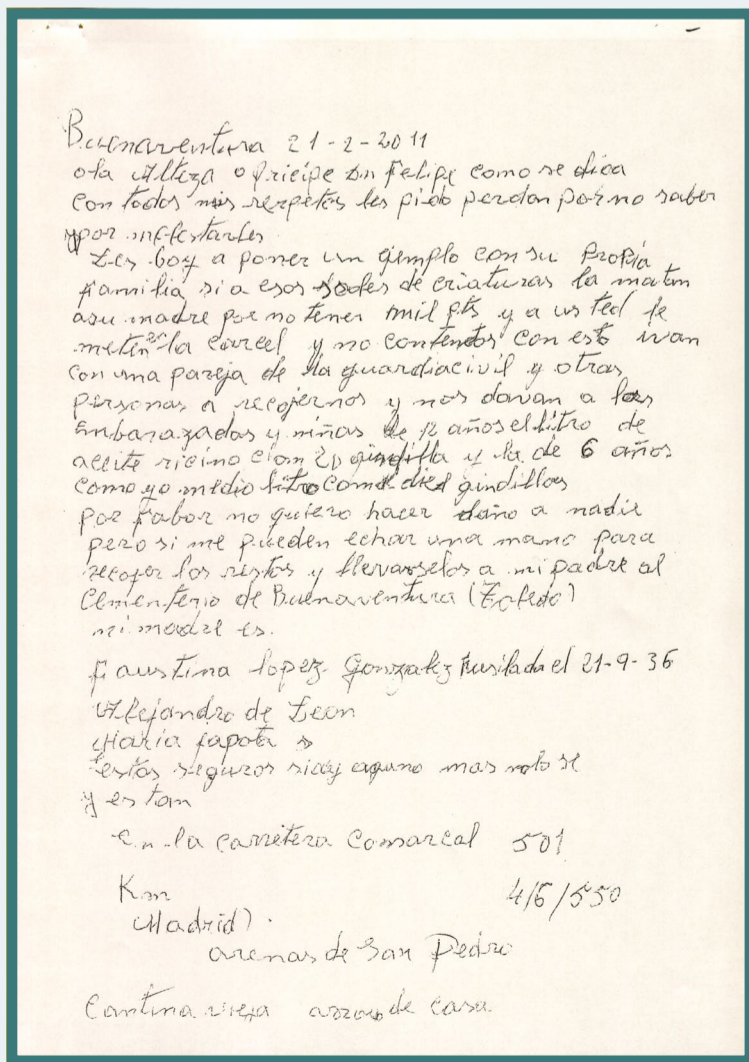 Buenaventura 21-2-2011
ola Alteza o Pricipe Dn Felipe como se dica
con todos mis respetos les pido perdon por no saber
y por molestarles
Les boy a poner un ejemplo con su Propia
familia si a esos soles de criaturas la matan
a su madre por no tener mil pts y a usted le
meten en la carcel y no contentos con esto ivan
con una pareja de la guardia civil y otras
personas a recojernos y nos davan a las
Embarazadas y niñas de 12 años el litro de
aceite ricino con 20 gindilla y la de 6 años
como yo medio litro con diez gindillas
por fabor no quiero hacer daño a nadie
pero si me pueden echar una mano para
recojer los restos y llevarselos a mi padre al
Cementerio de Buenaventura (Toledo)
mi madre es.
Faustina lopez Gonzalez Fusilada el 21-9-36
Alejandro de Leon
Maria
estos seguros si ay aguno mas nolo se
y estan
en la carretera Comarcal 501
Km 4/6/550
Madrid).
arenas de San Pedro
Cantina vieja arroyo de casa